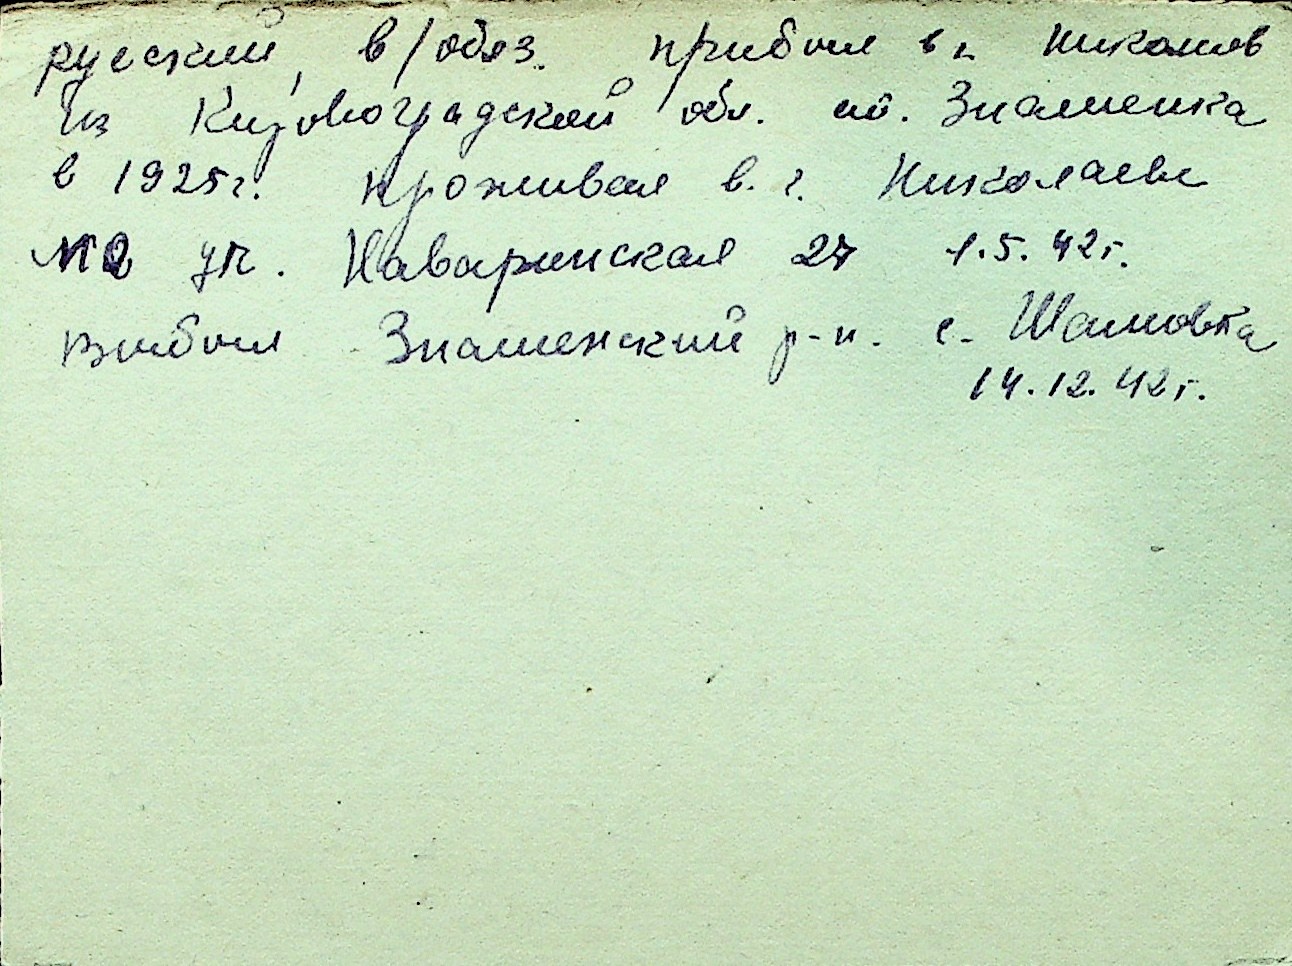 русский, в/обяз. прибыл в г. Николаев
из Кировоградской обл. ст. Знаменка
в 1925г. проживал в. г. Николаеве
ул. Наваринская 27 1.5.42г.
выбыл Знаменский р-н. с. Шамовка
14.12.42г.